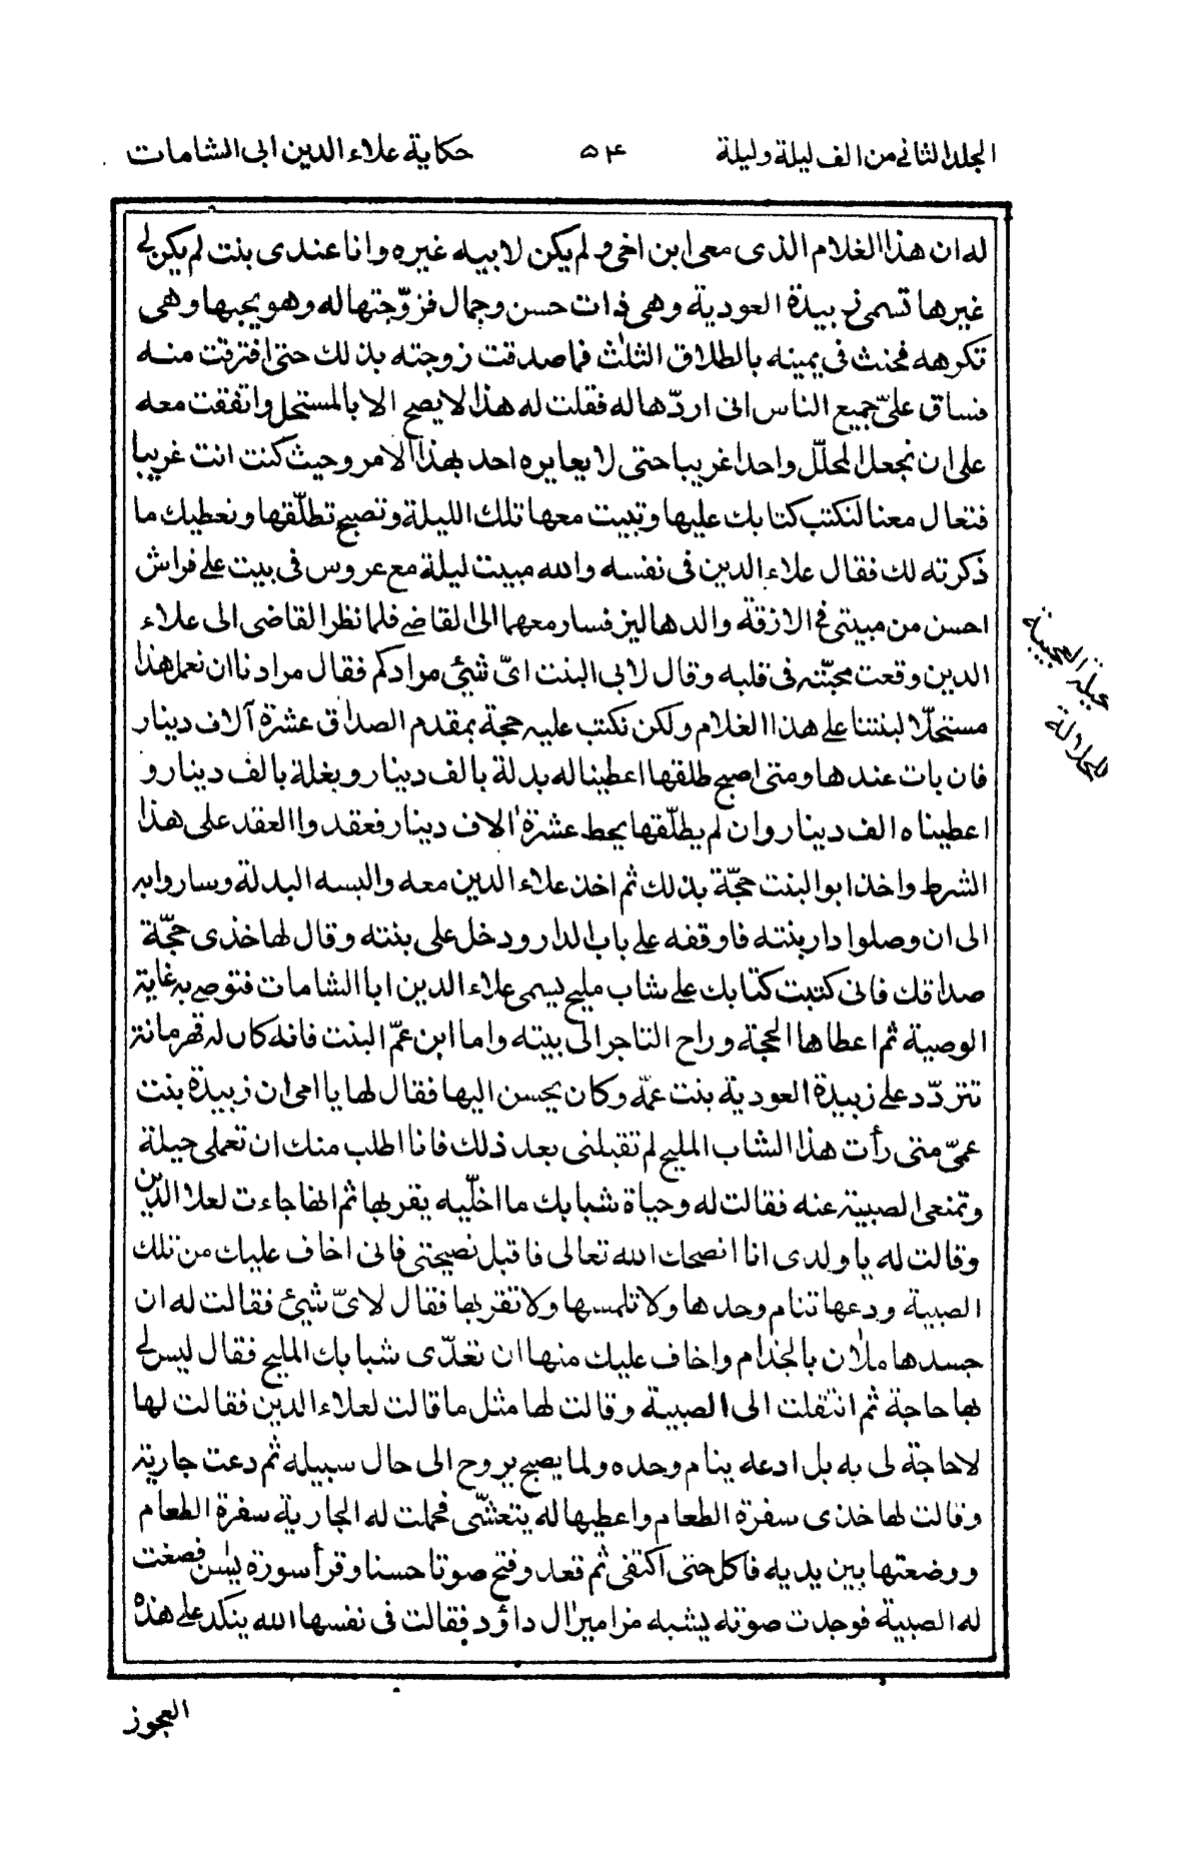 المجلد الثانى من الف ليلة وليلة ٥۴ حكاية علاء الدين ابى الشامات
له ان هذا الغلام الذى معى ابن اخى و لم يكن لابيه غيره وانا عندى بنت لم يكن لى
غيرها تسمى زبيدة العودية وهى ذات حسن وجمال فزوّجتها له وهو يحبها وهى
تكرهه فحنث فى يمينه بالطلاق الثلث فما صدقت زوجته بذلك حتى افترقت منه
فساق علىّ جميع الناس انى اردّها له فقلت له هذا لا يصح الا بالمستحل واتفقت معه
على ان نجعل المحلّل واحدا غريبا حتى لا يعايره احد بهذا الامر وحيث كنت انت غريبا
فتعال معنا لنكتب كتابك عليها وتبيت معها تلك الليلة وتصبح تطلّقها ونعطيك ما
ذكرته لك فقال علاء الدين فى نفسه والله مبيت ليلة مع عروس فى بيت على فراش
احسن من مبيتى فى الازقة والدهاليز فسار معهما الى القاضى فلما نظر القاضى الى علاء
الدين وقعت محبّته فى قلبه وقال لابى البنت اىّ شيئ مرادكم فقال مرادنا ان نعمل هذا
مستحلّا لبنتنا على هذا الغلام ولكن نكتب عليه حجة بمقدم الصداق عشرة آلاف دينار
فان بات عندها ومتى اصبح طلقها اعطينا له بدلة بالف دينار وبغلة بالف دينار و
اعطيناه الف دينار وان لم يطلّقها يحط عشرة الاف دينار فعقدوا العقد على هذا
الشرط واخذ ابو البنت حجّة بذلك ثم اخذ علاء الدين معه والبسه البدلة وساروا به
الى ان وصلوا دار بنته فاوقفه على باب الدار ودخل على بنته وقال لها خذى حجّة
صداقك فانى كتبت كتابك على شاب مليح يسمى علاء الدين ابا الشامات فتوصى به غاية
الوصية ثم اعطاها الحجة وراح التاجر الى بيته واما ابن عمّ البنت فانه كان له قهرمانة
تتردّد على زبيدة العودية بنت عمّه وكان يحسن اليها فقال لها يا امى ان زبيدة بنت
عمىّ متى رأت هذا الشاب المليح لم تقبلنى بعد ذلك فانا اطلب منك ان تعملى حيلة
وتمنعى الصبية عنه فقالت له وحياة شبابك ما اخلّيه يقربها ثم انها جاءت لعلا الدين
وقالت له يا ولدى انا انصحك الله تعالى فاقبل نصيحتى فانى اخاف عليك من تلك
الصبية ودعها تنام وحدها ولا تلمسها ولا تقربها فقال لاىّ شيئ فقالت له ان
جسدها ملآن بالجذام واخاف عليك منها ان تعدّى شبابك المليح فقال ليس لى
بها حاجة ثم انتقلت الى الصبية وقالت لها مثل ما قالت لعلاء الدين فقالت لها
لا حاجة لى به بل ادعه ينام وحده ولما يصبح يروح الى حال سبيله ثم دعت جارية
وقالت لها خذى سفرة الطعام واعطيها له يتعشّى فحملت له الجارية سفرة الطعام
ووضعتها بين يديه فاكل حتى اكتفى ثم قعد وفتح صوتا حسنا وقرأ سورة يس فصغت
له الصبية فوجدت صوته يشبه مزامير ال داؤد فقالت فى نفسها الله ينكد على هذه
العجوز
حيلة العجيبة
للحلالة